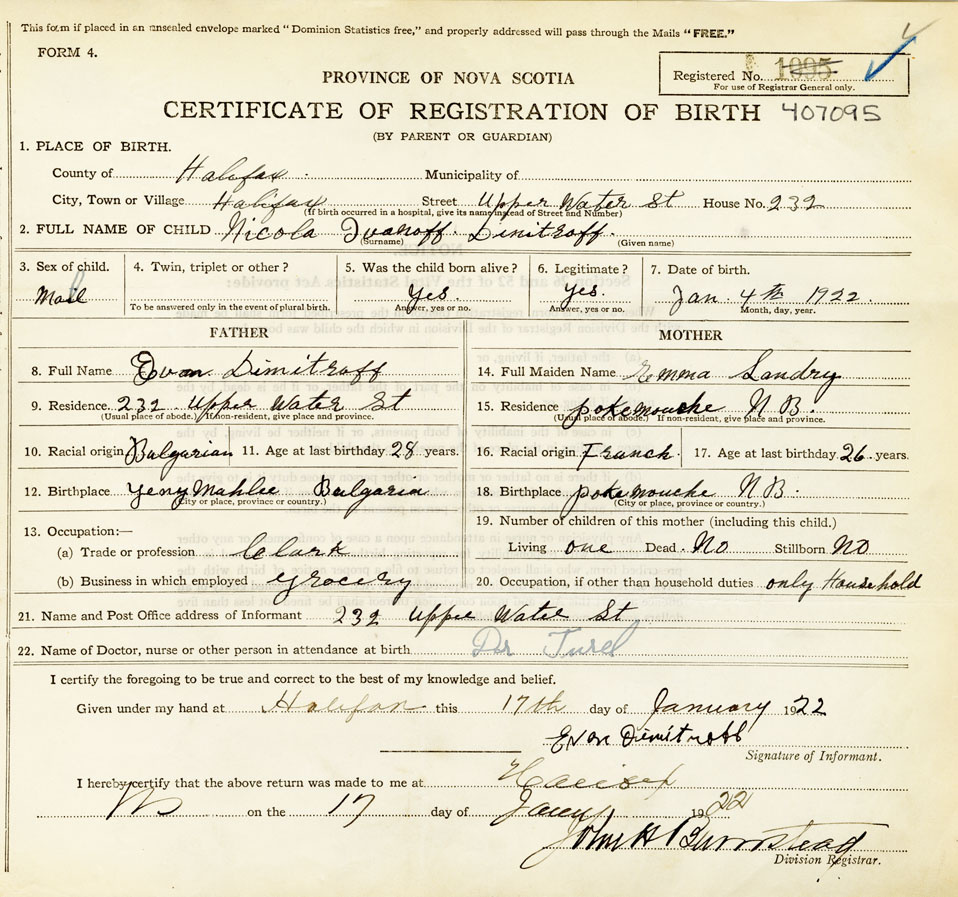 This form if placed in an unsealed envelope marked "Dominion Statistics free," and properly addressed will pass through the Mails "FREE."
FORM 4.
Registered No. 1095
For use of Registrar General only.
PROVINCE OF NOVA SCOTIA
CERTIFICATE OF REGISTRATION OF BIRTH 407095
(BY PARENT OR GUARDIAN)
1. PLACE OF BIRTH.
County of Halifax Municipality of
City, Town or Village Halifax Street Upper Water St House No. 232
(If birth occurred in a hospital, give its name instead of Street and Number)
2. FULL NAME OF CHILD Nicola Ivanoff Dimitroff.
(Surname) (Given name)
3. Sex of child. 4. Twin, triplet or other? 5. Was the child born alive? 6. Legitimate? 7. Date of birth.
Mail Yes. Yes. Jan. 4th 1922.
To be answered only in the event of plural birth. Answer, yes or no. Answer, yes or no. Month, day, year.
FATHER MOTHER
8. Full Name Evan Dimitroff 14. Full Maiden Name Emma Landry
9. Residence 232 Upper Water St 15. Residence pokemouche N B.
(Usual place of abode.) If non-resident, give place and province. (Usual place of abode.) If non-resident, give place and province.
10. Racial origin Bulgarian 11. Age at last birthday 28 years. 16. Racial origin Franch. 17. Age at last birthday 26 years.
12. Birthplace Yeny Mahlee Bulgaria 18. Birthplace pokemouche N B.
(City or place, province or country.) (City or place, province or country.)
13. Occupation:— 19. Number of children of this mother (including this child.)
(a) Trade or profession Clark Living one Dead No Stillborn NO
(b) Business in which employed grocery 20. Occupation, if other than household duties only Household
21. Name and Post Office address of Informant 232 Upper Water St
22. Name of Doctor, nurse or other person in attendance at birth Dr Turel
I certify the foregoing to be true and correct to the best of my knowledge and belief.
Given under my hand at Halifax this 17th day of January 1922
Evan Dimitroff
Signature of Informant.
I hereby certify that the above return was made to me at Halifax
on the 17 day of Jany 1922
John H Burmstead
Division Registrar.